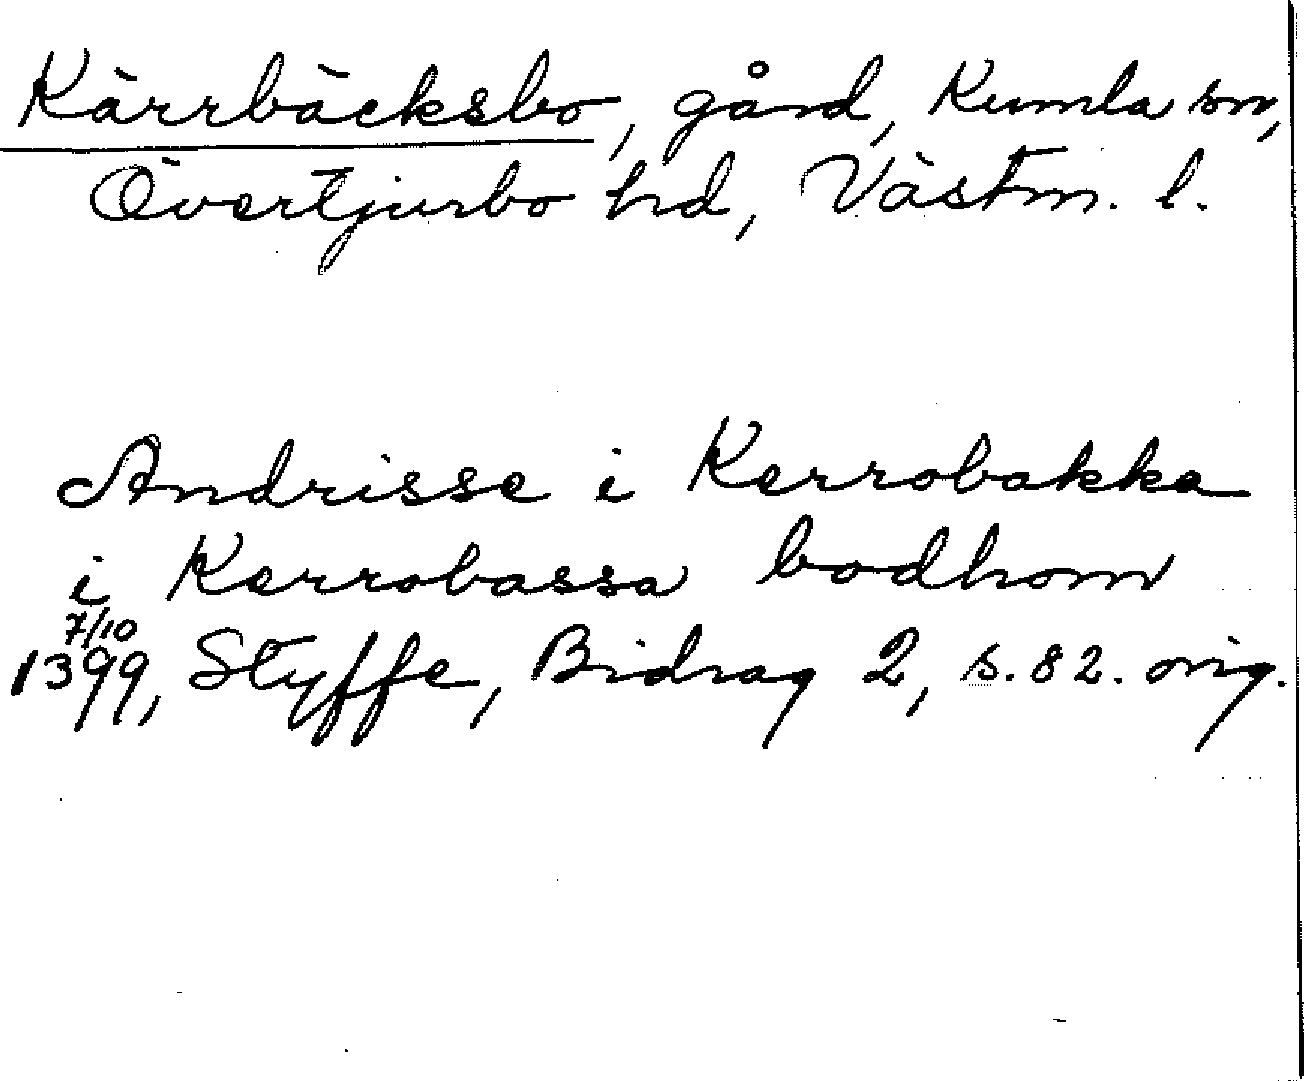 Kärrbäcksbo, gård, Kumla sn,
Övertjurbo hd, Västm. l.
Andrisse i Kerrobakka
i Kerrobassa bodhom
7/10
1399, Styffe, Bidrag 2, s. 82. orig.